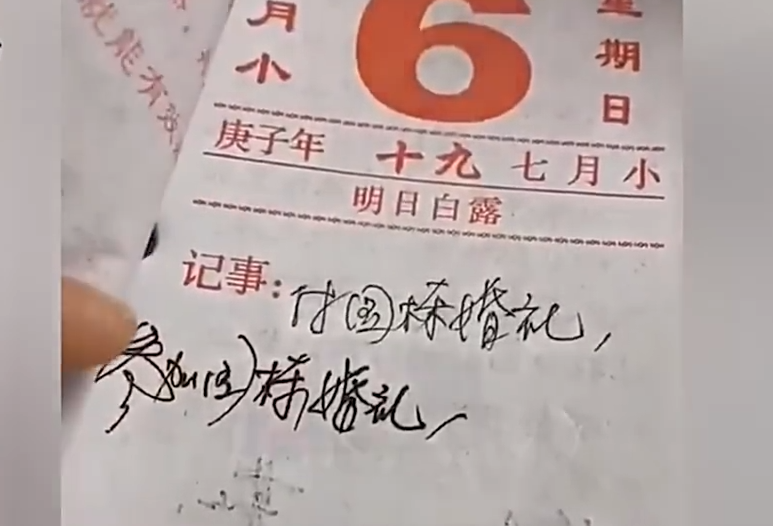 就能有效
月 6 星
小 期
日
庚子年 十九 七月小
明日白露
记事:付国栋婚礼,
参加国栋婚礼,